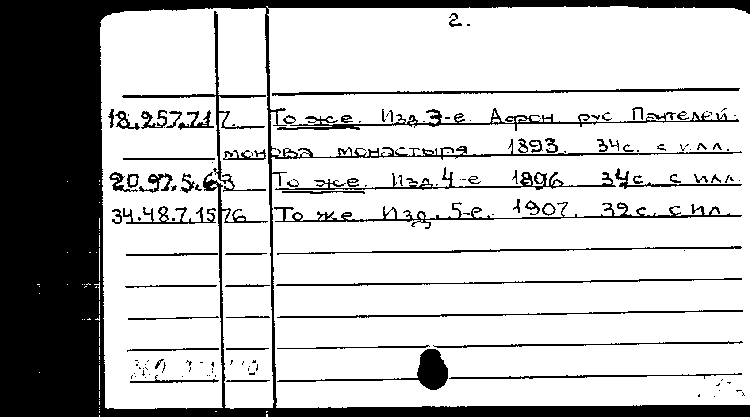 2.
18.257.7.17. То же. Изд. 3-е. Афон рус Пантелей-
монова монастыря 1893. 34с. с илл.
20.97.5.63 То же. Изд. 4-е 1896 34с. с илл
34.48.7.1576 То же Изд. 5-е. 1907. 32с. с ил.